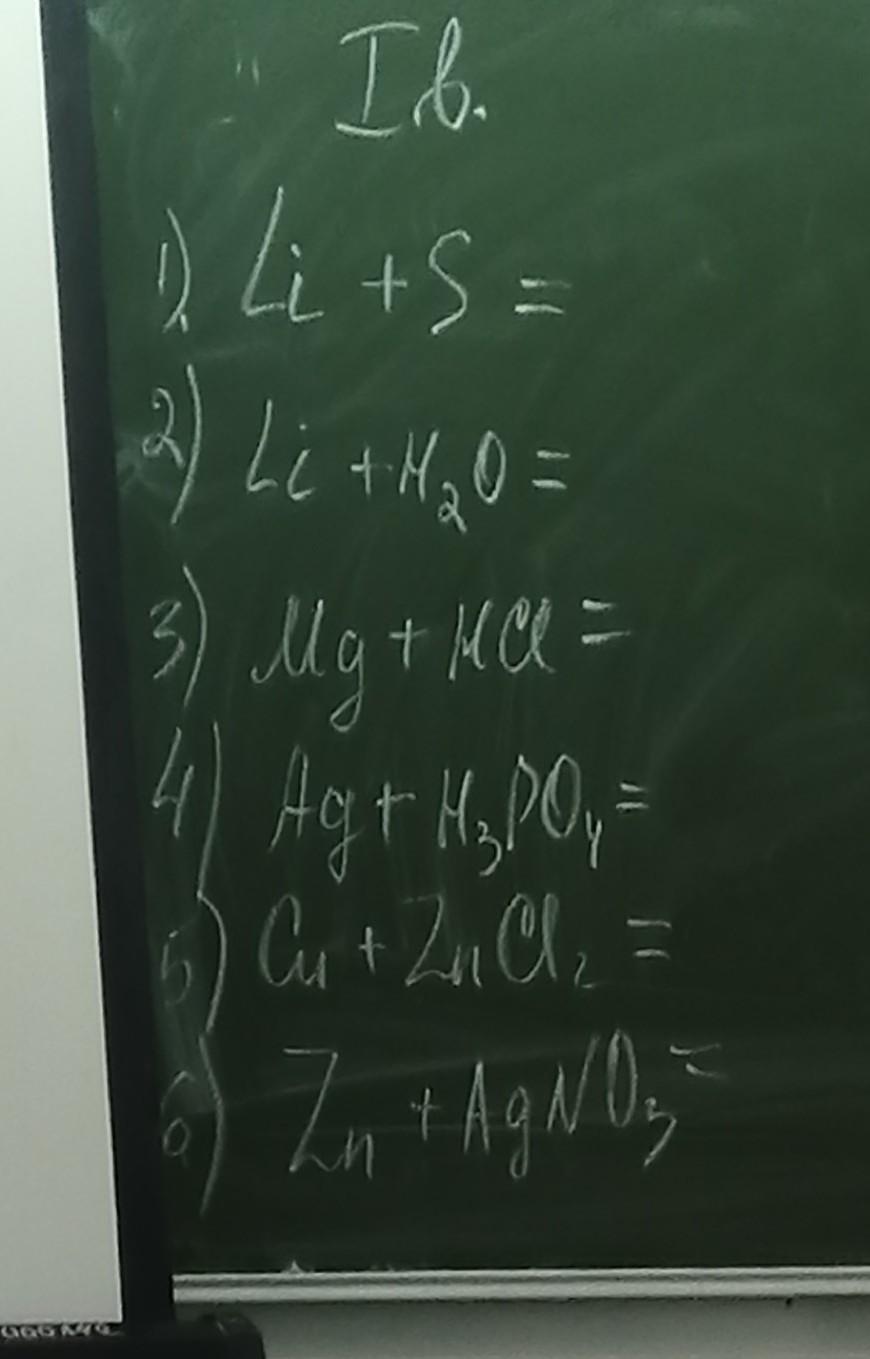 I в.
1). Li + S =
2) Li + H₂O =
3) Mg + HCl =
4) Ag + H₃PO₄ =
5) Cu + ZnCl₂ =
6) Zn + AgNO₃ =